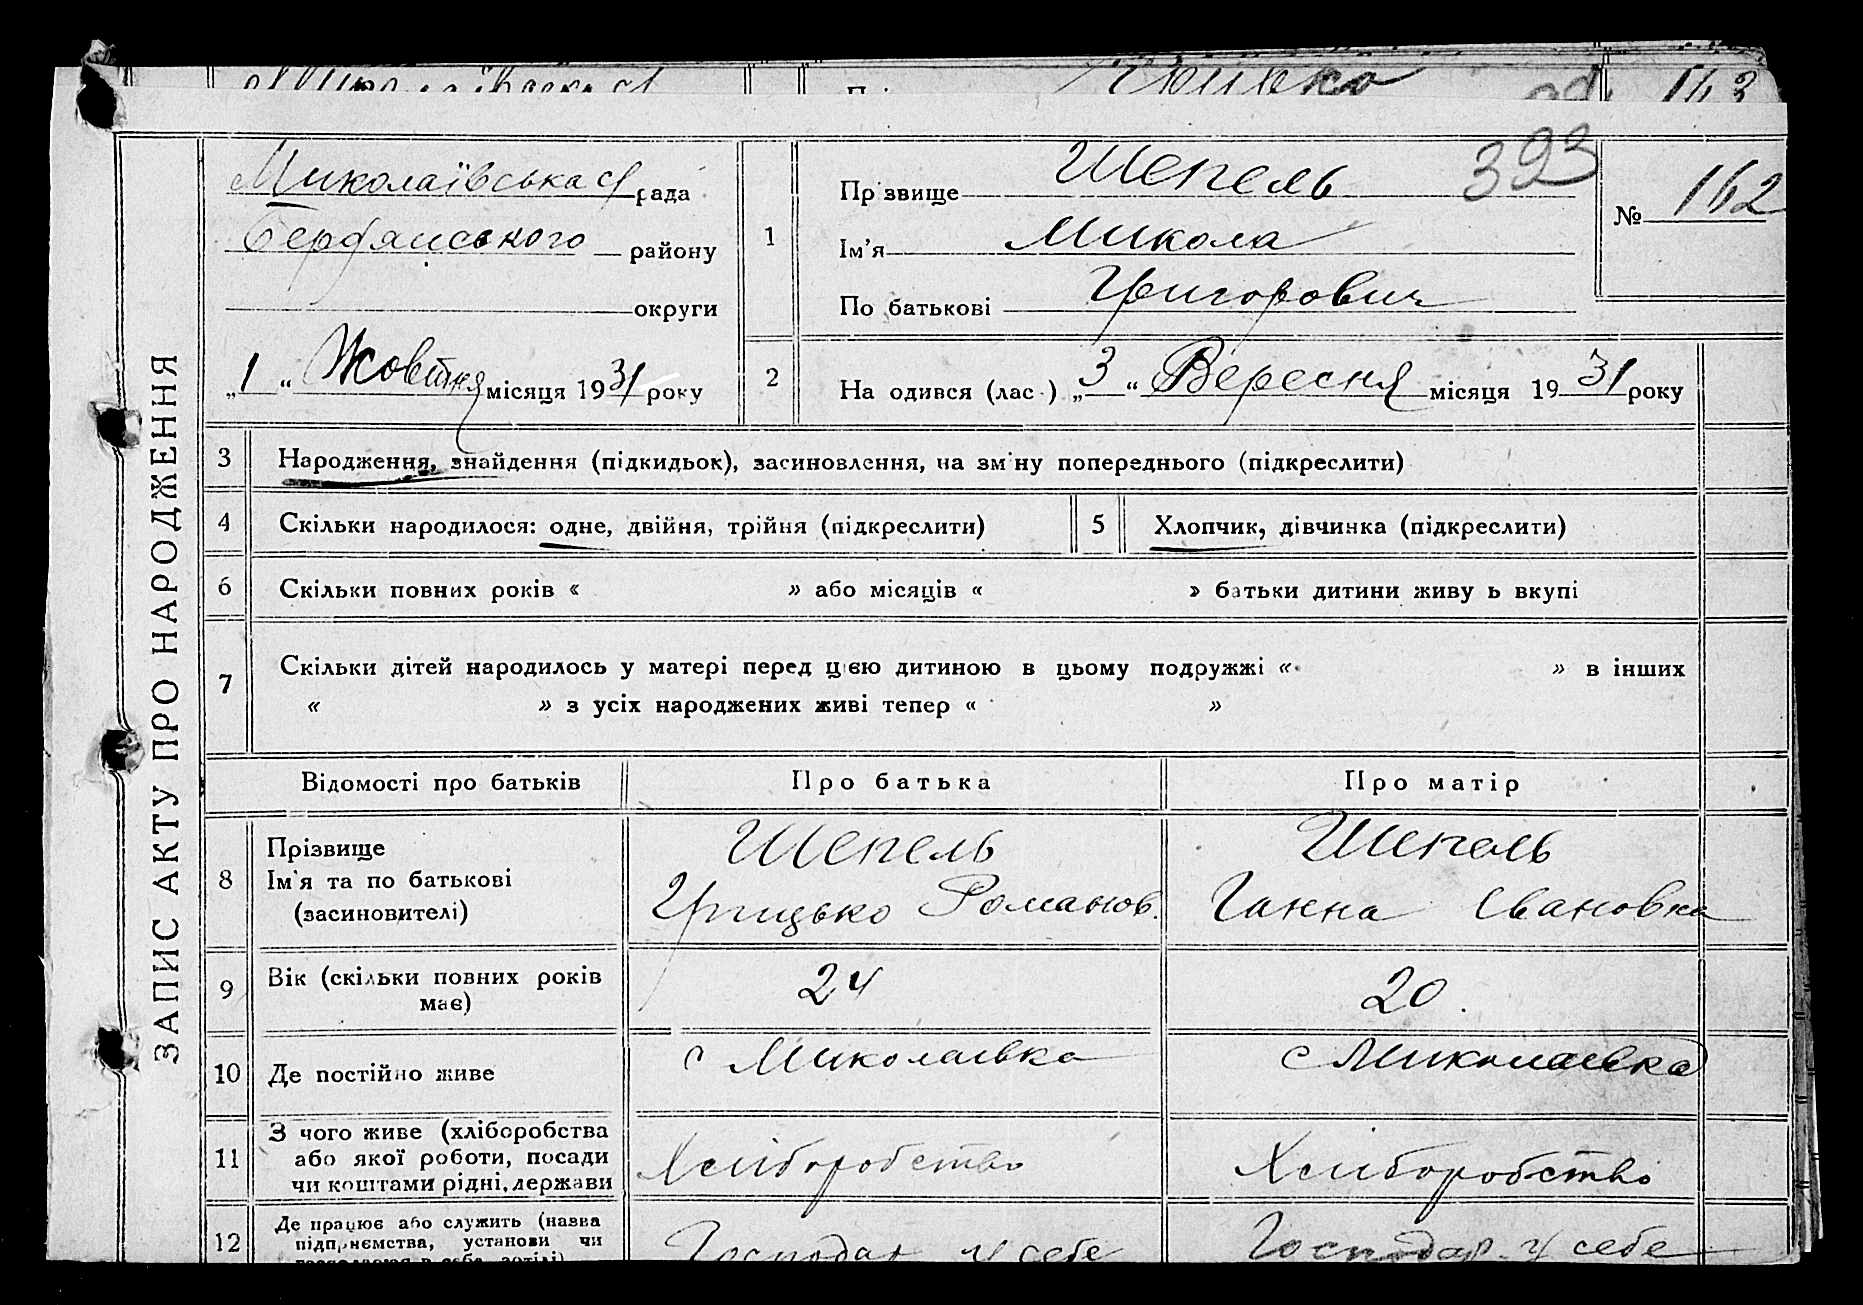 163
ЗАПИС АКТУ ПРО НАРОДЖЕННЯ
Миколаївська с/рада
Бердянського району
округи
„1“ Жовтня місяця 1931 року
1
Пр звище Шепель
393
Ім’я Микола
По батькові Григорович
№ 162
2
На одився (лас ) „3“ Вересня місяця 1931 року
3 Народження, знайдення (підкидьок), засиновлення, на зм ну попереднього (підкреслити)
4 Скільки народилося: одне, двійня, трійня (підкреслити)
5 Хлопчик, дівчинка (підкреслити)
6 Скільки повних років « » або місяців « » батьки дитини живу ь вкупі
7 Скільки дітей народилось у матері перед цією дитиною в цьому подружжі « » в інших
« » з усіх народжених живі тепер « »
Відомості про батьків Про батька Про матір
8 Прізвище
Ім’я та по батькові
(засиновителі)
Шепель
Грицько Романов.
Шепель
Ганна Івановна
9 Вік (скільки повних років
має)
24
20.
10 Де постійно живе
с Миколаївка
с Миколаївка
11 З чого живе (хліборобства
або якої роботи, посади
чи коштами рідні, держави
Хліборобство
Хліборобство
12 Де працює або служить (назва
підприємства, установи чи
Господар у себе
Господар у себе